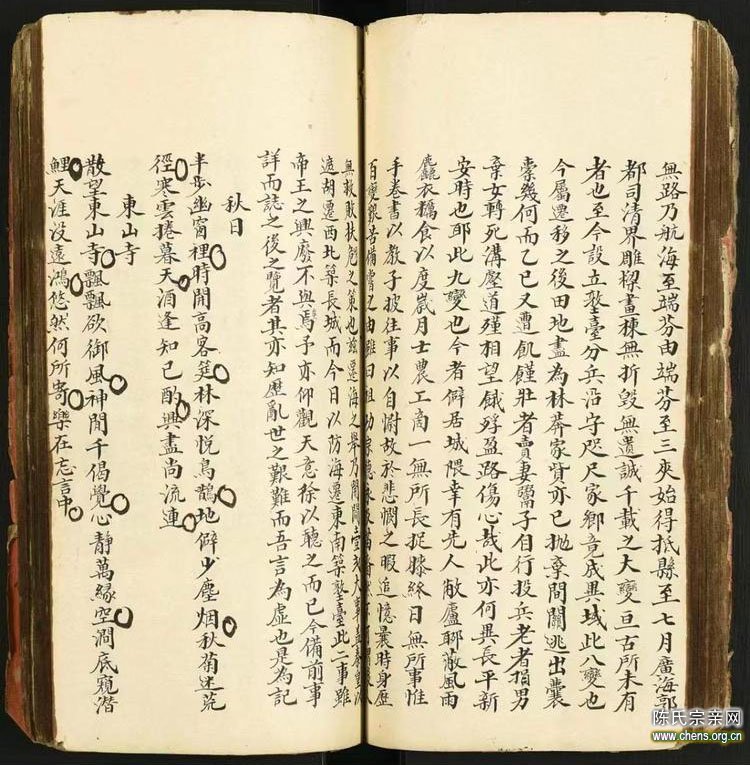 無路乃航海至端芬由端芬至三夾始得抵縣至七月廣海郭
都司清界雕樑畫棟無折毀無遺誠千載之大變亘古所未有
者也至今設立墪臺分兵沿守咫尺家鄉竟成異域此八變也
今屬遷移之後田地盡為林莽家貲亦已拋棄間關逃出囊
橐幾何而乙巳又遭飢饉壯者賣妻鬻子自行投兵老者捐男
棄女轉死溝壑道殣相望餓殍盈路傷心哉此亦何異長平新
安時也耶此九變也今者僻居城隈幸有先人敝廬聊蔽風雨
麤衣糲食以度歲月士農工商一無所長捉膝終日無所事惟
手卷書以教子披往事以自慰故於悲憫之暇追憶曩時身歷
百變艱苦備嘗之由雖曰祖功宗德
無救敗扶危之策也玆遷海之舉乃開闢
遮胡遷西北築長城而今日以防海遷東南築墪臺此二事雖
帝王之興廢不與焉予亦仰觀天意徐以聽之而已今備前事
詳而誌之後之覽者其亦知歷亂世之艱難而吾言為虛也是為記
秋日
半步幽窗裡時開高客筵林深悅鳥鵲地僻少塵烟秋菊迷荒
徑寒雲捲暮天酒逢知已酌興盡尚流連
東山寺
散望東山寺飄飄欲御風神閒千偈覺心靜萬緣空澗底窺潛
鯉天涯没遠鴻悠然何所寄樂在忘言中
陈氏宗亲网
www.chens.org.cn